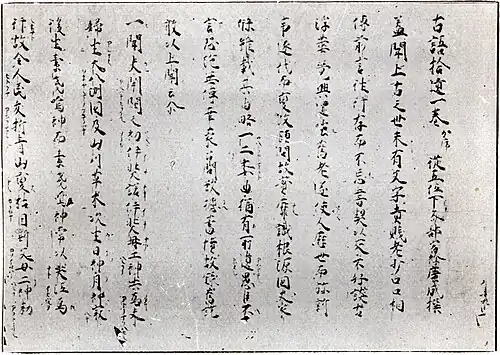 古語拾遺一巻 加序 従五位下斎部宿祢廣成撰
蓋聞上古之世未有文字貴賤老少口口相
傳前言徃行存而不忘書契以来不好談古
浮華競興還嗤舊老遂使人歴世而弥新
事逐代而変改顧問故實靡識根源国史家
牒雖載其由略一二委曲猶有所遺愚臣不
言恐絶無傳幸蒙召問欲攄蓄憤故録舊説
敢以上聞云尓
一聞夫開闢之初伊奘諾伊奘冉二神共為夫
婦生大八洲国及山川草木次生日神月神最
後生素戔嗚神而素戔嗚神常以哭泣為
行故令人民夭折青山変枯因斯父母二神勅